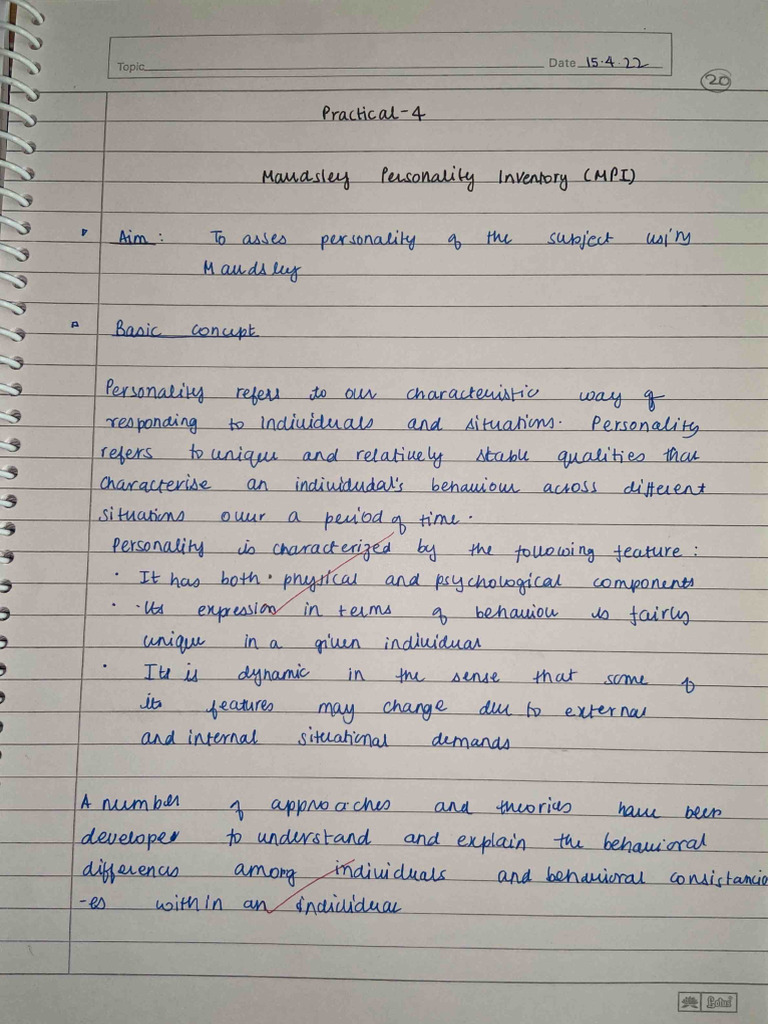 Topic
Date 15.4.22
20
Practical-4
Maudsley Personality Inventory (MPI)
Aim : To asses personality of the subject using
Maudsley
Basic concept
Personality refers to our characteristic way of
responding to individuals and situations. Personality
refers to unique and relatively stable qualities that
characterise an individudal's behaviour across different
situations ouur a period of time.
Personality is characterized by the following feature :
· It has both · physical and psychological components
· · Its expression in terms of behaviou is fairly
unique in a given individual
· Its is dynamic in the sense that some of
its features may change due to external
and internal situational demands
A number of approaches and theories have been
developed to understand and explain the behavioral
differences among individuals and behavioral consistancie
-es within an indicidual
Lotus